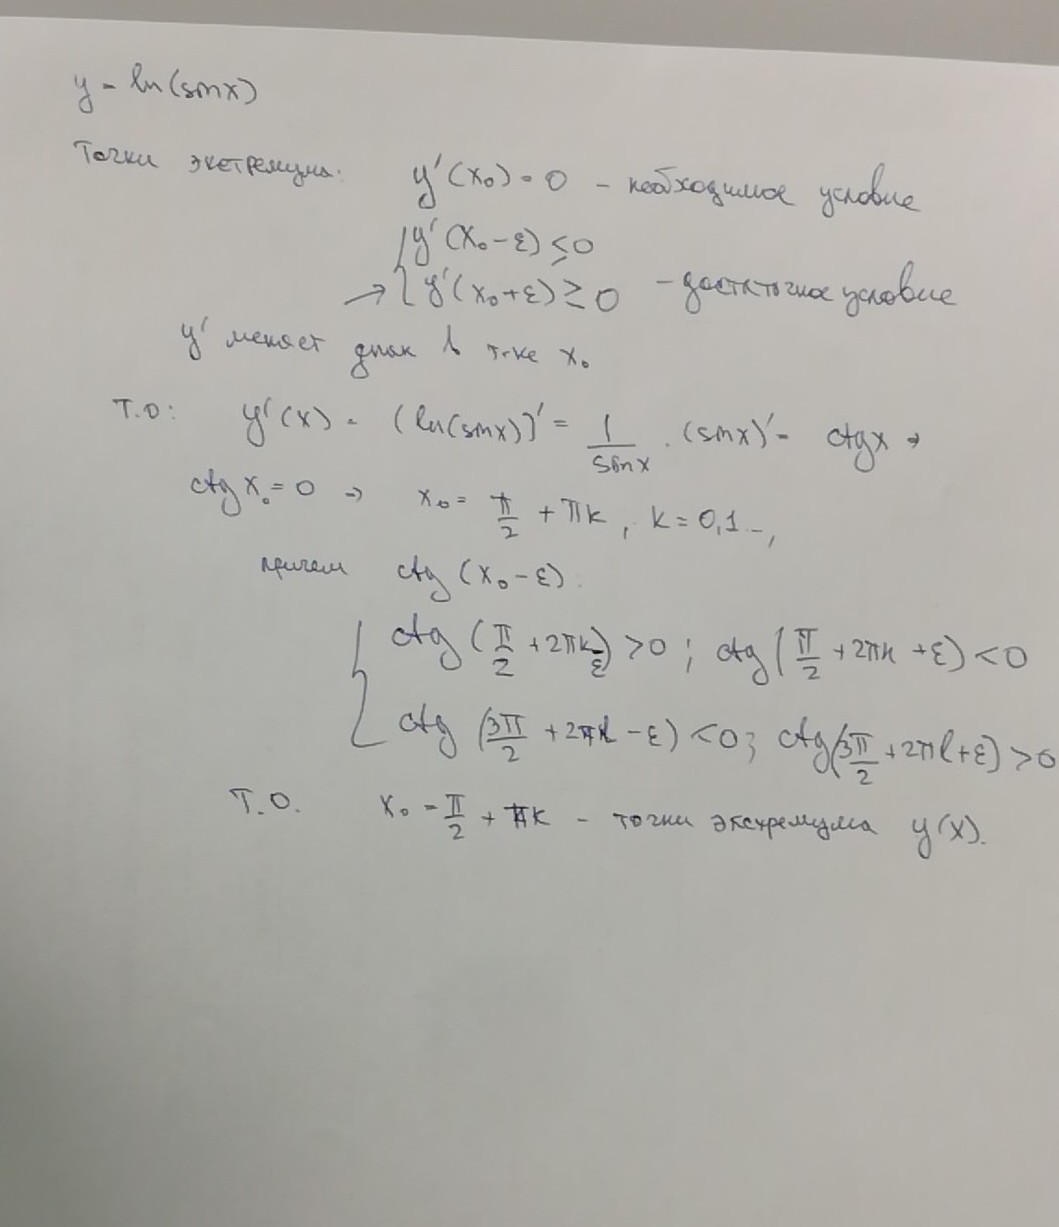 y = ln(sinx)
Точки экстремума: y'(x₀) = 0 – необходимое условие
{ y'(x₀-ε) ≤ 0
→ { y'(x₀+ε) ≥ 0 – достаточное условие
y' меняет знак в т-ке x₀
Т.О: y'(x) = (ln(sinx))' = 1/sinx · (sinx)' = ctgx →
ctg x₀ = 0 → x₀ = π/2 + πk, k = 0,1..,
причем ctg (x₀-ε):
[ ctg (π/2 + 2πk - ε) > 0 ; ctg (π/2 + 2πk + ε) < 0
ctg (3π/2 + 2πl - ε) < 0; ctg (3π/2 + 2πl + ε) > 0
Т.О. x₀ = π/2 + πk – точки экстремума y(x).